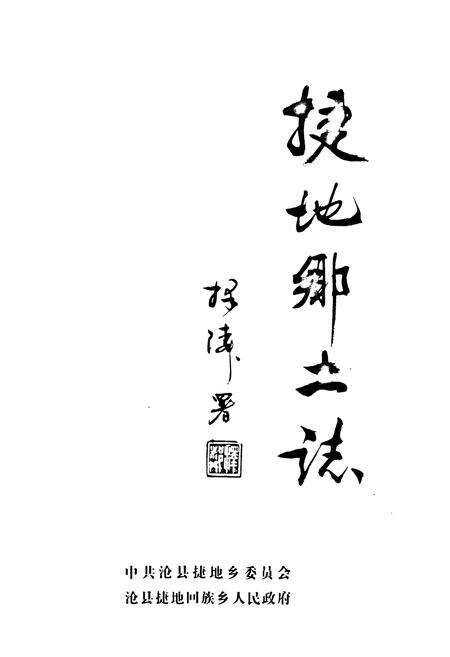 捷地鄉土誌
署
中共沧县捷地乡委员会
沧县捷地回族乡人民政府